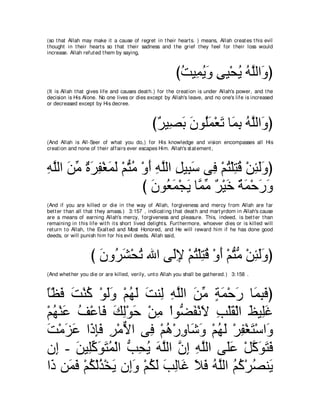 (so that Allah may make it a cause of regret in their hearts.) means, Allah creates this evil
thought in their hearts so that their sadness and the grief they feel for their loss would
increase. Allah refuted them by saying,
(وَاللَّهُ يُحْيِى وَيُمِيتُ)
(It is Allah that gives life and causes death.) for the creation is under Allah's power, and the
decision is His Alone. No one lives or dies except by Allah's leave, and no one's life is increased
or decreased except by His decree.
(وَاللَّهُ بِمَا تَعْمَلُونَ بَصِيرٌ)
(And Allah is All-Seer of what you do.) for His knowledge and vision encompasses all His
creation and none of their affairs ever escapes Him. Allah's statement,
(وَلَئِنْ قُتِلْتُمْ فِى سَبِيلِ اللَّهِ أَوْ مُتُّمْ لَمَغْفِرَةٌ مِّنَ اللَّهِ
وَرَحْمَةٌ خَيْرٌ مِّمَّا يَجْمَعُونَ )
(And if you are killed or die in the way of Allah, forgiveness and mercy from Allah are far
better than all that they amass.) 3:157 , indicating that death and martyrdom in Allah's cause
are a means of earning Allah's mercy, forgiveness and pleasure. This, indeed, is better than
remaining in this life with its short lived delights. Furthermore, whoever dies or is killed will
return to Allah, the Exalted and Most Honored, and He will reward him if he has done good
deeds, or will punish him for his evil deeds. Allah said,
(وَلَئِنْ مُّتُّمْ أَوْ قُتِلْتُمْ لإِلَى الله تُحْشَرُونَ )
(And whether you die or are killed, verily, unto Allah you shall be gathered.) 3:158 .
(فَبِمَا رَحْمَةٍ مِّنَ اللَّهِ لِنتَ لَهُمْ وَلَوْ كُنْتَ فَظّاً
غَلِيظَ الْقَلْبِ لاَنْفَضُّواْ مِنْ حَوْلِكَ فَاعْفُ عَنْهُمْ
وَاسْتَغْفِرْ لَهُمْ وَشَاوِرْهُمْ فِى الأٌّمْرِ فَإِذَا عَزَمْتَ
فَتَوَكَّلْ عَلَى اللَّهِ إِنَّ اللَّهَ يُحِبُّ الْمُتَوَكِّلِينَ - إِن
يَنصُرْكُمُ اللَّهُ فَلاَ غَالِبَ لَكُمْ وَإِن يَخْذُلْكُمْ فَمَن ذَا